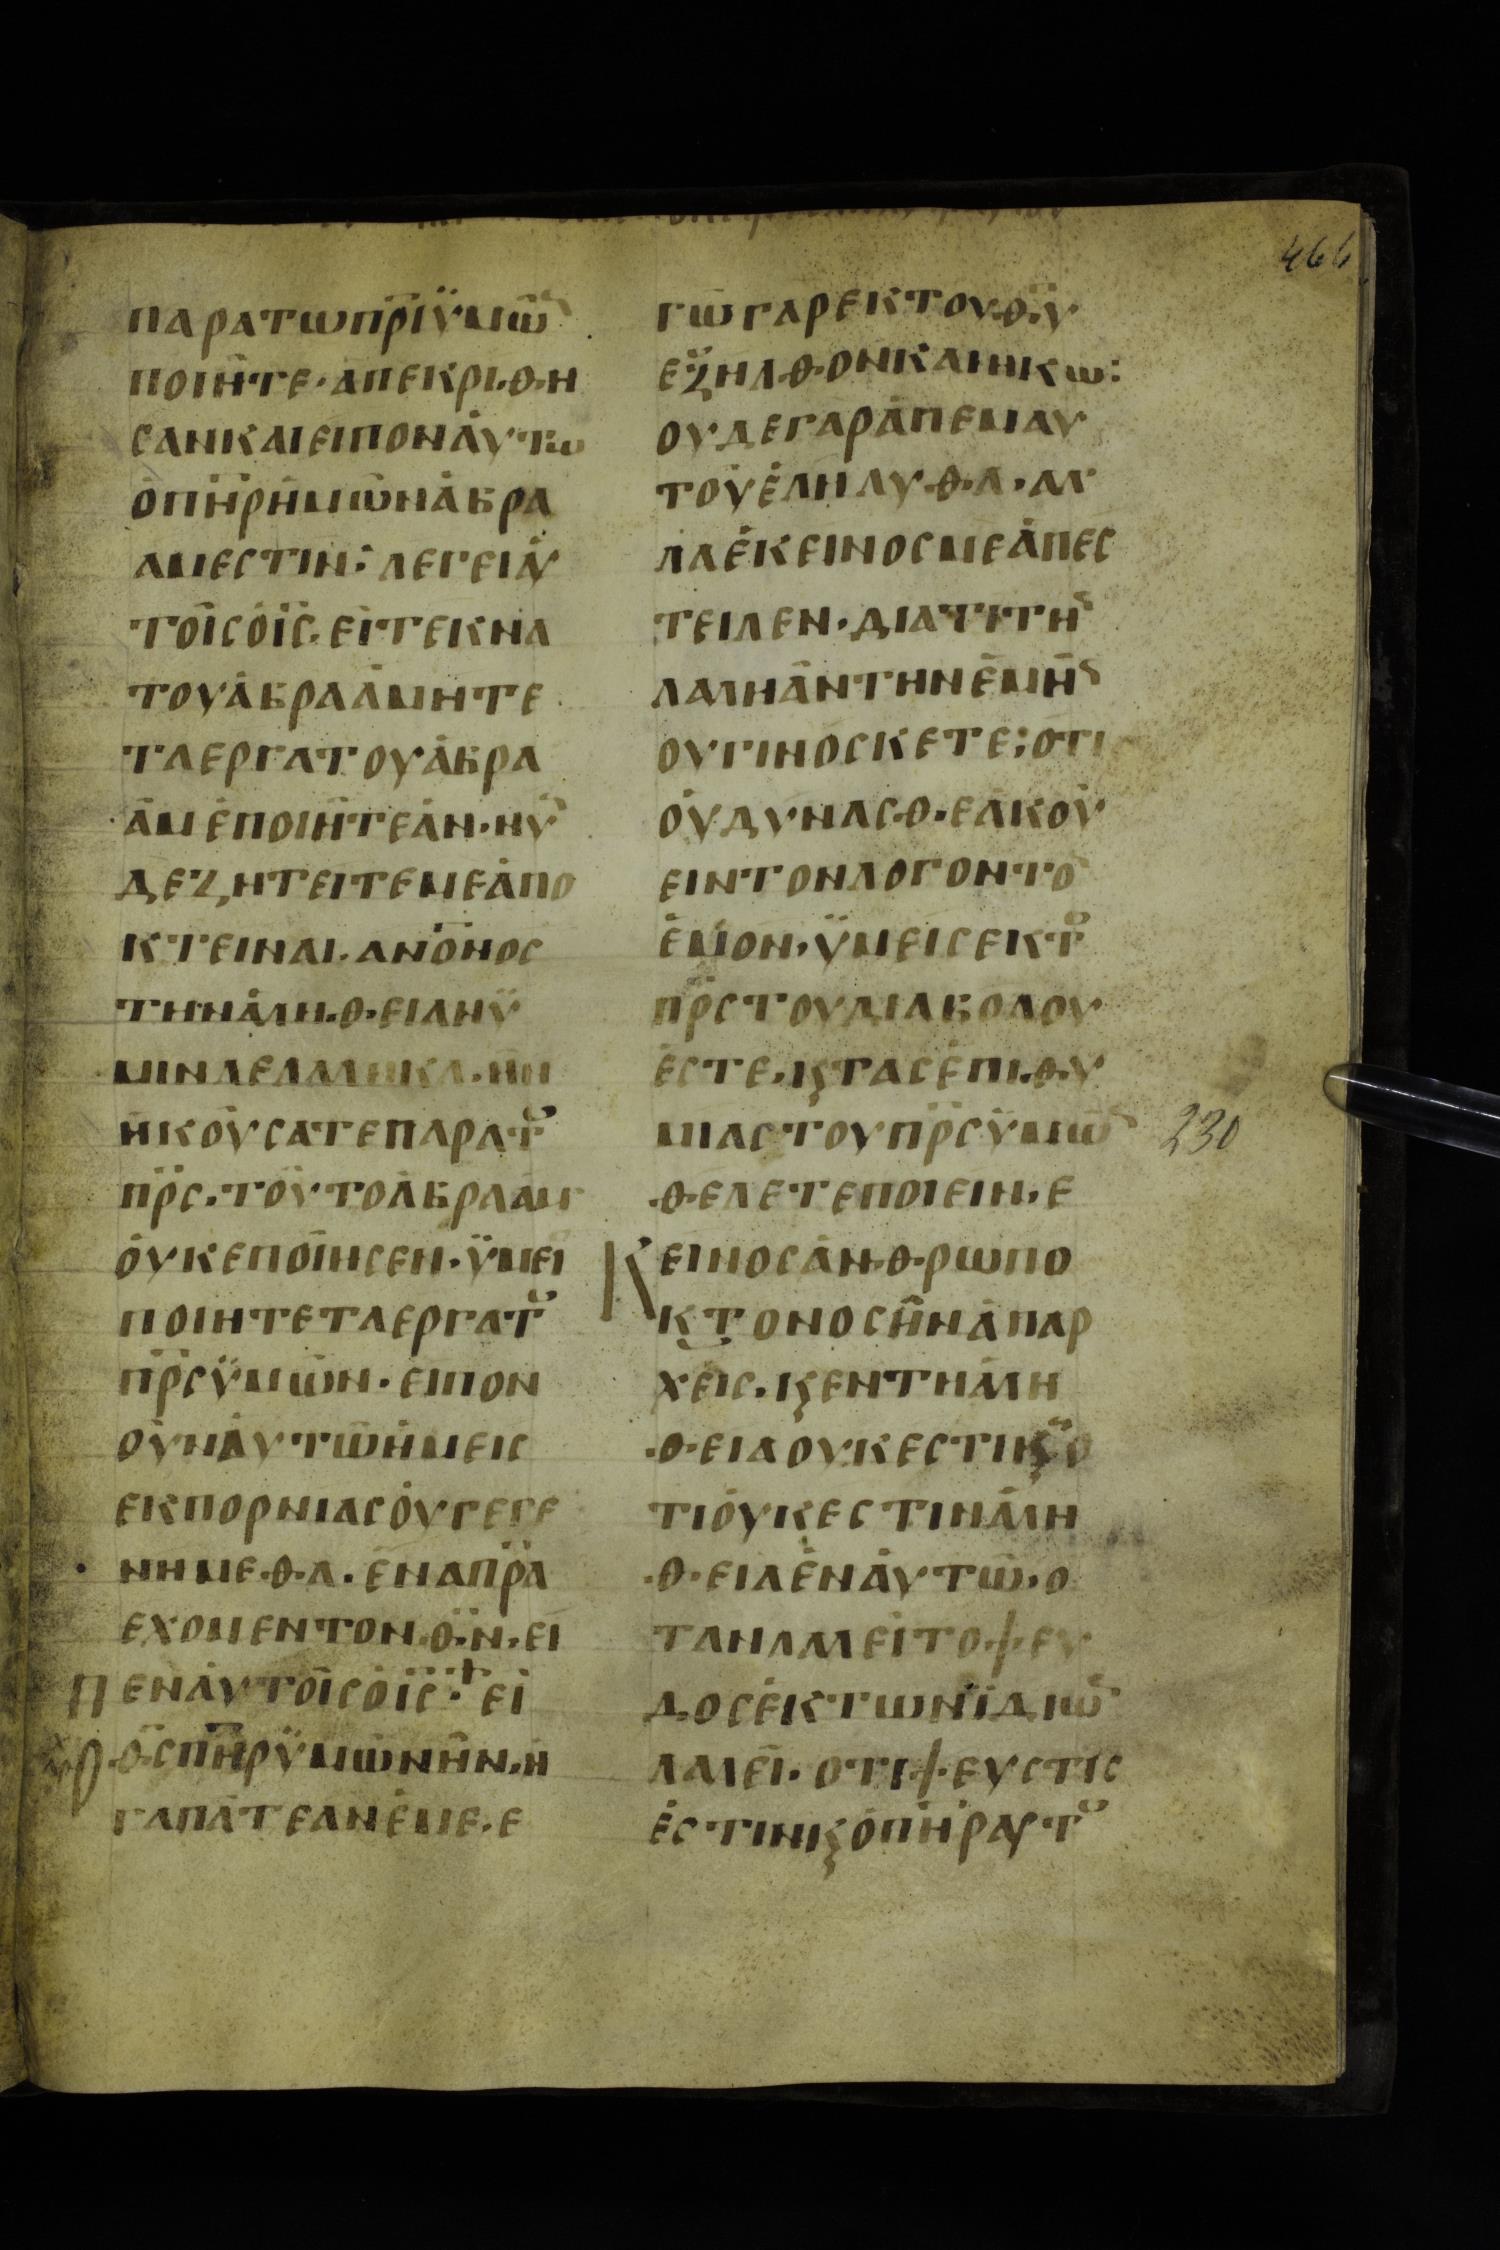 466
παρατωπρ̅ιϋμω̅
ποιητε·απεκρι·θ·η
σανκαιειπονἀυτω
ὁπη̅ρἡμω̅νἀβρα
αμεστιν· λεγειἀυ
τοι̅σὁι̅ς·ει̇τεκνα
τουἀβραἀμητε
ταεργατουἀβρα
ἀμἐποιη̅τεἀν·νυ̅
δεζητειτεμεἀπο
κτειναι·αν̅ο̅νος
τηνἀλη·θ·ειανϋ
μινλελαληκα·ην
ἠκου̇σατεπαρατȣ
πρ̅ς·του̇τοἀβρααμ
ὀυκεποι̅ησεν·ϋμει
ποιητεταεργατȣ
πρ̅σϋμω̅ν·ειπον
ουναυτω̅ἡμεις
εκπορνιασὀυγεγε
νημε·θ·α·ἑναπρ̅α
εχομεντον·θ̅·ν·ει
πενἀυτοι̅σὁι̅ς·ει̇
ο·θ̅·σπη̅ρϋμω̅νη̅ν·ἠ
γαπἀτεἀνἐμε·ε
γω̅γαρεκτου·θ̅·υ
εξηλ·θ·ονκαιηκω:
ουδεγαρἀπεμαυ
του̅ἐληλυ·θ·α·αλ
λαἐκεινοσμεἀπεσ
τειλεν·διατιτη
λαλιἀντηνἐμη̅
ουγινοσκετε; οτι
ὀυδυνασ·θ·εἀκου̇
ειντονλογοντο
ἐμον·ϋμεισεκτȣ
πρ̅στουδιαβολου
ἐστε·ϗτασἐπι·θ·υ
μιαστουπρ̅σϋμω̅
230
·θ·ελετεποιειν·ε
κεινοσἀν·θ·ρωπο
κτονοση̅νἀπαρ
χεις·ϗεντηἀλη
·θ·ειαουκεστικȣ̅ο
τιὀυκεστιναλη
·θ·ειαἐνἀυτω̅·ο
ταναλαλει̇το·ψ·ευ
δοσἐκτωνϊδιω̅
λαλει̅·οτι·ψ·ευστις
ἐστινϗὁπη̅ραυτȣ